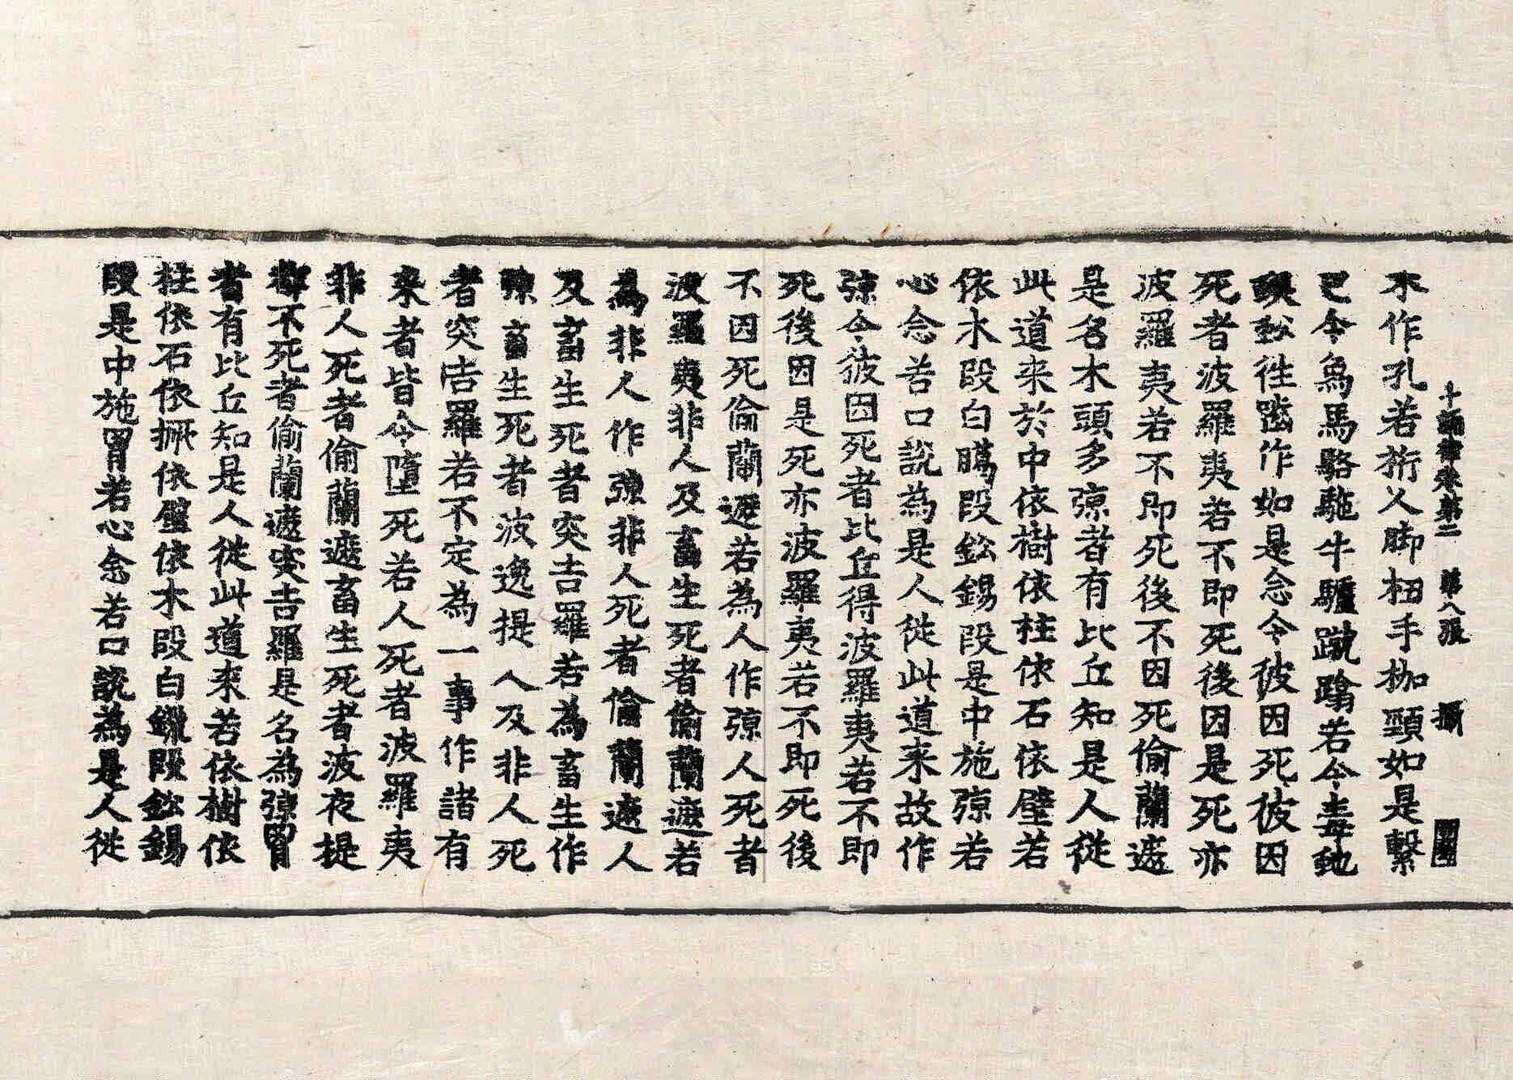 十誦律卷第二　第八張　攝
木作孔若桁人脚杻手枷頸如是繫
已令烏馬駱駞牛驢蹴蹹若令毒虵
蜈蚣往齧作如是念令彼因死彼因
死者波羅夷若不即死後因是死亦
波羅夷若不即死後不因死偷蘭遮
是名木頭多弶者有比丘知是人從
此道来於中依樹依柱依石依壁若
依木段白鑞段鈆錫段是中施弶若
心念若口說為是人從此道来故作
弶令彼因死者比丘得波羅夷若不即
死後因是死亦波羅夷若不即死後
不因死偷蘭遮若為人作弶人死者
波羅夷非人及畜生死者偷蘭遮若
為非人作弶非人死者偷蘭遮人
及畜生死者突吉羅若為畜生作
弶畜生死者波逸提人及非人死
者突吉羅若不定為一事作諸有
来者皆令墮死若人死者波羅夷
非人死者偷蘭遮畜生死者波夜提
都不死者偷蘭遮突吉羅是名為弶罥
者有比丘知是人從此道来若依樹依
柱依石依橛依壁依木段白鑞段鈆錫
段是中施罥若心念若口說為是人從